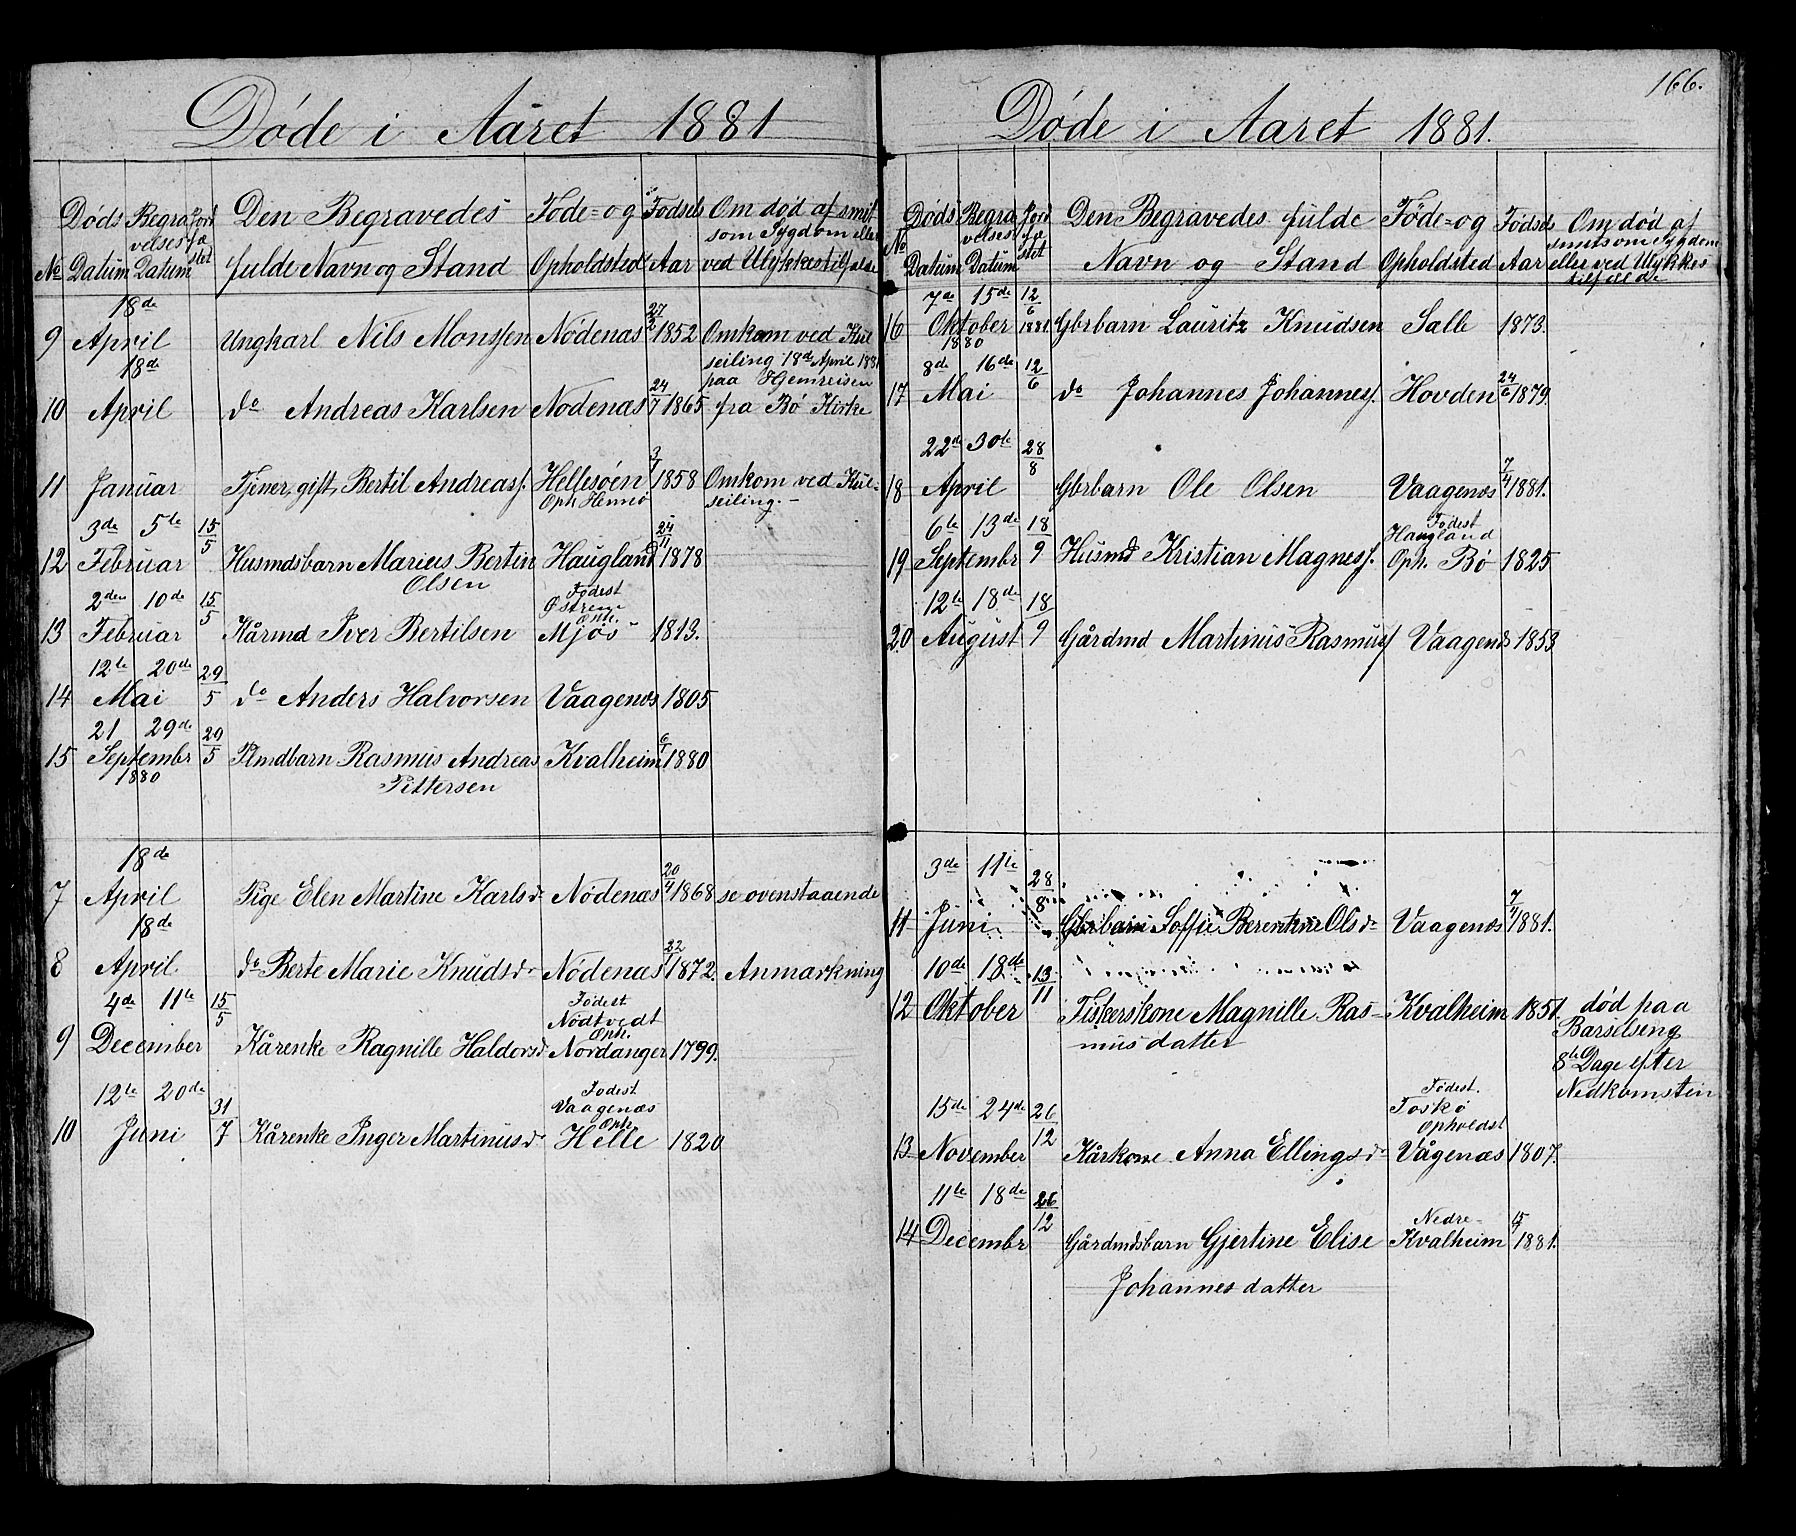 Døde i Aaret 1881
Døds Begra Jord Den Begravedes Føde= og Fødsels Om død af smit
velses fæ som Sygdom eller
No Datum Datum stet fulde Navn og Stand Opholdsted Aar ved Ulykkestilfælde
18de 27/2
9 April Ungkarl Nils Monssen Nödenæs 1852 Omkom ved Kul
seiling 18de April 1881
18de 24/7 paa Hjemreisen
10 April do Andreas Karlsen Nödenæs 1865 fra Bø Kirke
3/1
11 Januar Tjener, gift, Bertil Andreass. Hellesøen 1858 Omkom ved Kul-
Oph. Hennø seiling.-
3de 5te 15/5 24/11
12 Februar Husmdsbarn Marius Bertin Haugland 1878
Olsen
2den 10de 15/5 Fødest
Østrem
Oph.
13 Februar Kårmd Iver Bertilsen Mjøs 1813.
12te 20de 29/5
14 Mai do Anders Halvorsen Vaagenæs 1805
21 29de 29/5 6/1
15 Septembr Plmdbarn Rasmus Andreas Kvalheim 1880
1880 Pittersen
18de 20/4
7 April Pige Elen Martine Karlsdr Nödenæs 1868 se ovenstaaende
18de 22/1
8 April do Berte Marie Knudsdr Nödenæs 1872. Anmarkning
4de 11te 15/5 Fødest
Nødtvedt
Oph.
9 December Kårenke Ragnille Haldorsd. Nordanger 1799.
12te 20de 31/7 Fødest
Vaagenæs
Oph.
10 Juni Kårenke Inger Martinusdr Helle 1820
166.
Døde i Aaret 1881.
Døds Begra Jord Den Begravedes fulde Føde= og Fødsels Om død af
velses fæ smitsom Sygdom
No Datum Datum stet Navn og Stand Opholdsted Aar eller ved Ulykkes
tilfælde
7de 15de 12/6
16 Oktober 1881 Gbrbarn Lauritz Knudsen Salle 1873.
1880
8de 16de 12/6 24/6
17 Mai do Johannes Johanness. Hovden 1879.
22de 30te 28/8 7/4
18 April Gbrbarn Ole Olsen Vaagenæs 1881.
6te 13de 18/9 Fødest
Haugland
19 Septembr Husmd Kristian Magness. Oph. Bö 1825
12te 18de 18/9
20 August Gårdmd Martinus Rasmuss Vaagenæs 1853
3de 11te 28/8 7/4
11 Juni Gbrbarn Soffie Berentine Olsdr Vaagenæs 1881.
10de 18de 13/11
12 Oktober Fiskerskone Magnille Ras- Kvalheim 1851. død paa
musdatter Barselseng
8te Dage efter
Nedkomsten
15de 24de 26/12 Fødest.
Foskø
Opholdst
13 November Kårkone Anna Ellingsdr Vågenæs 1807.
11te 18de 26/12 Nedre-
14 Decembr Gårdmdsbarn Gjertine Elise Kvalheim 1881.
Johannesdatter